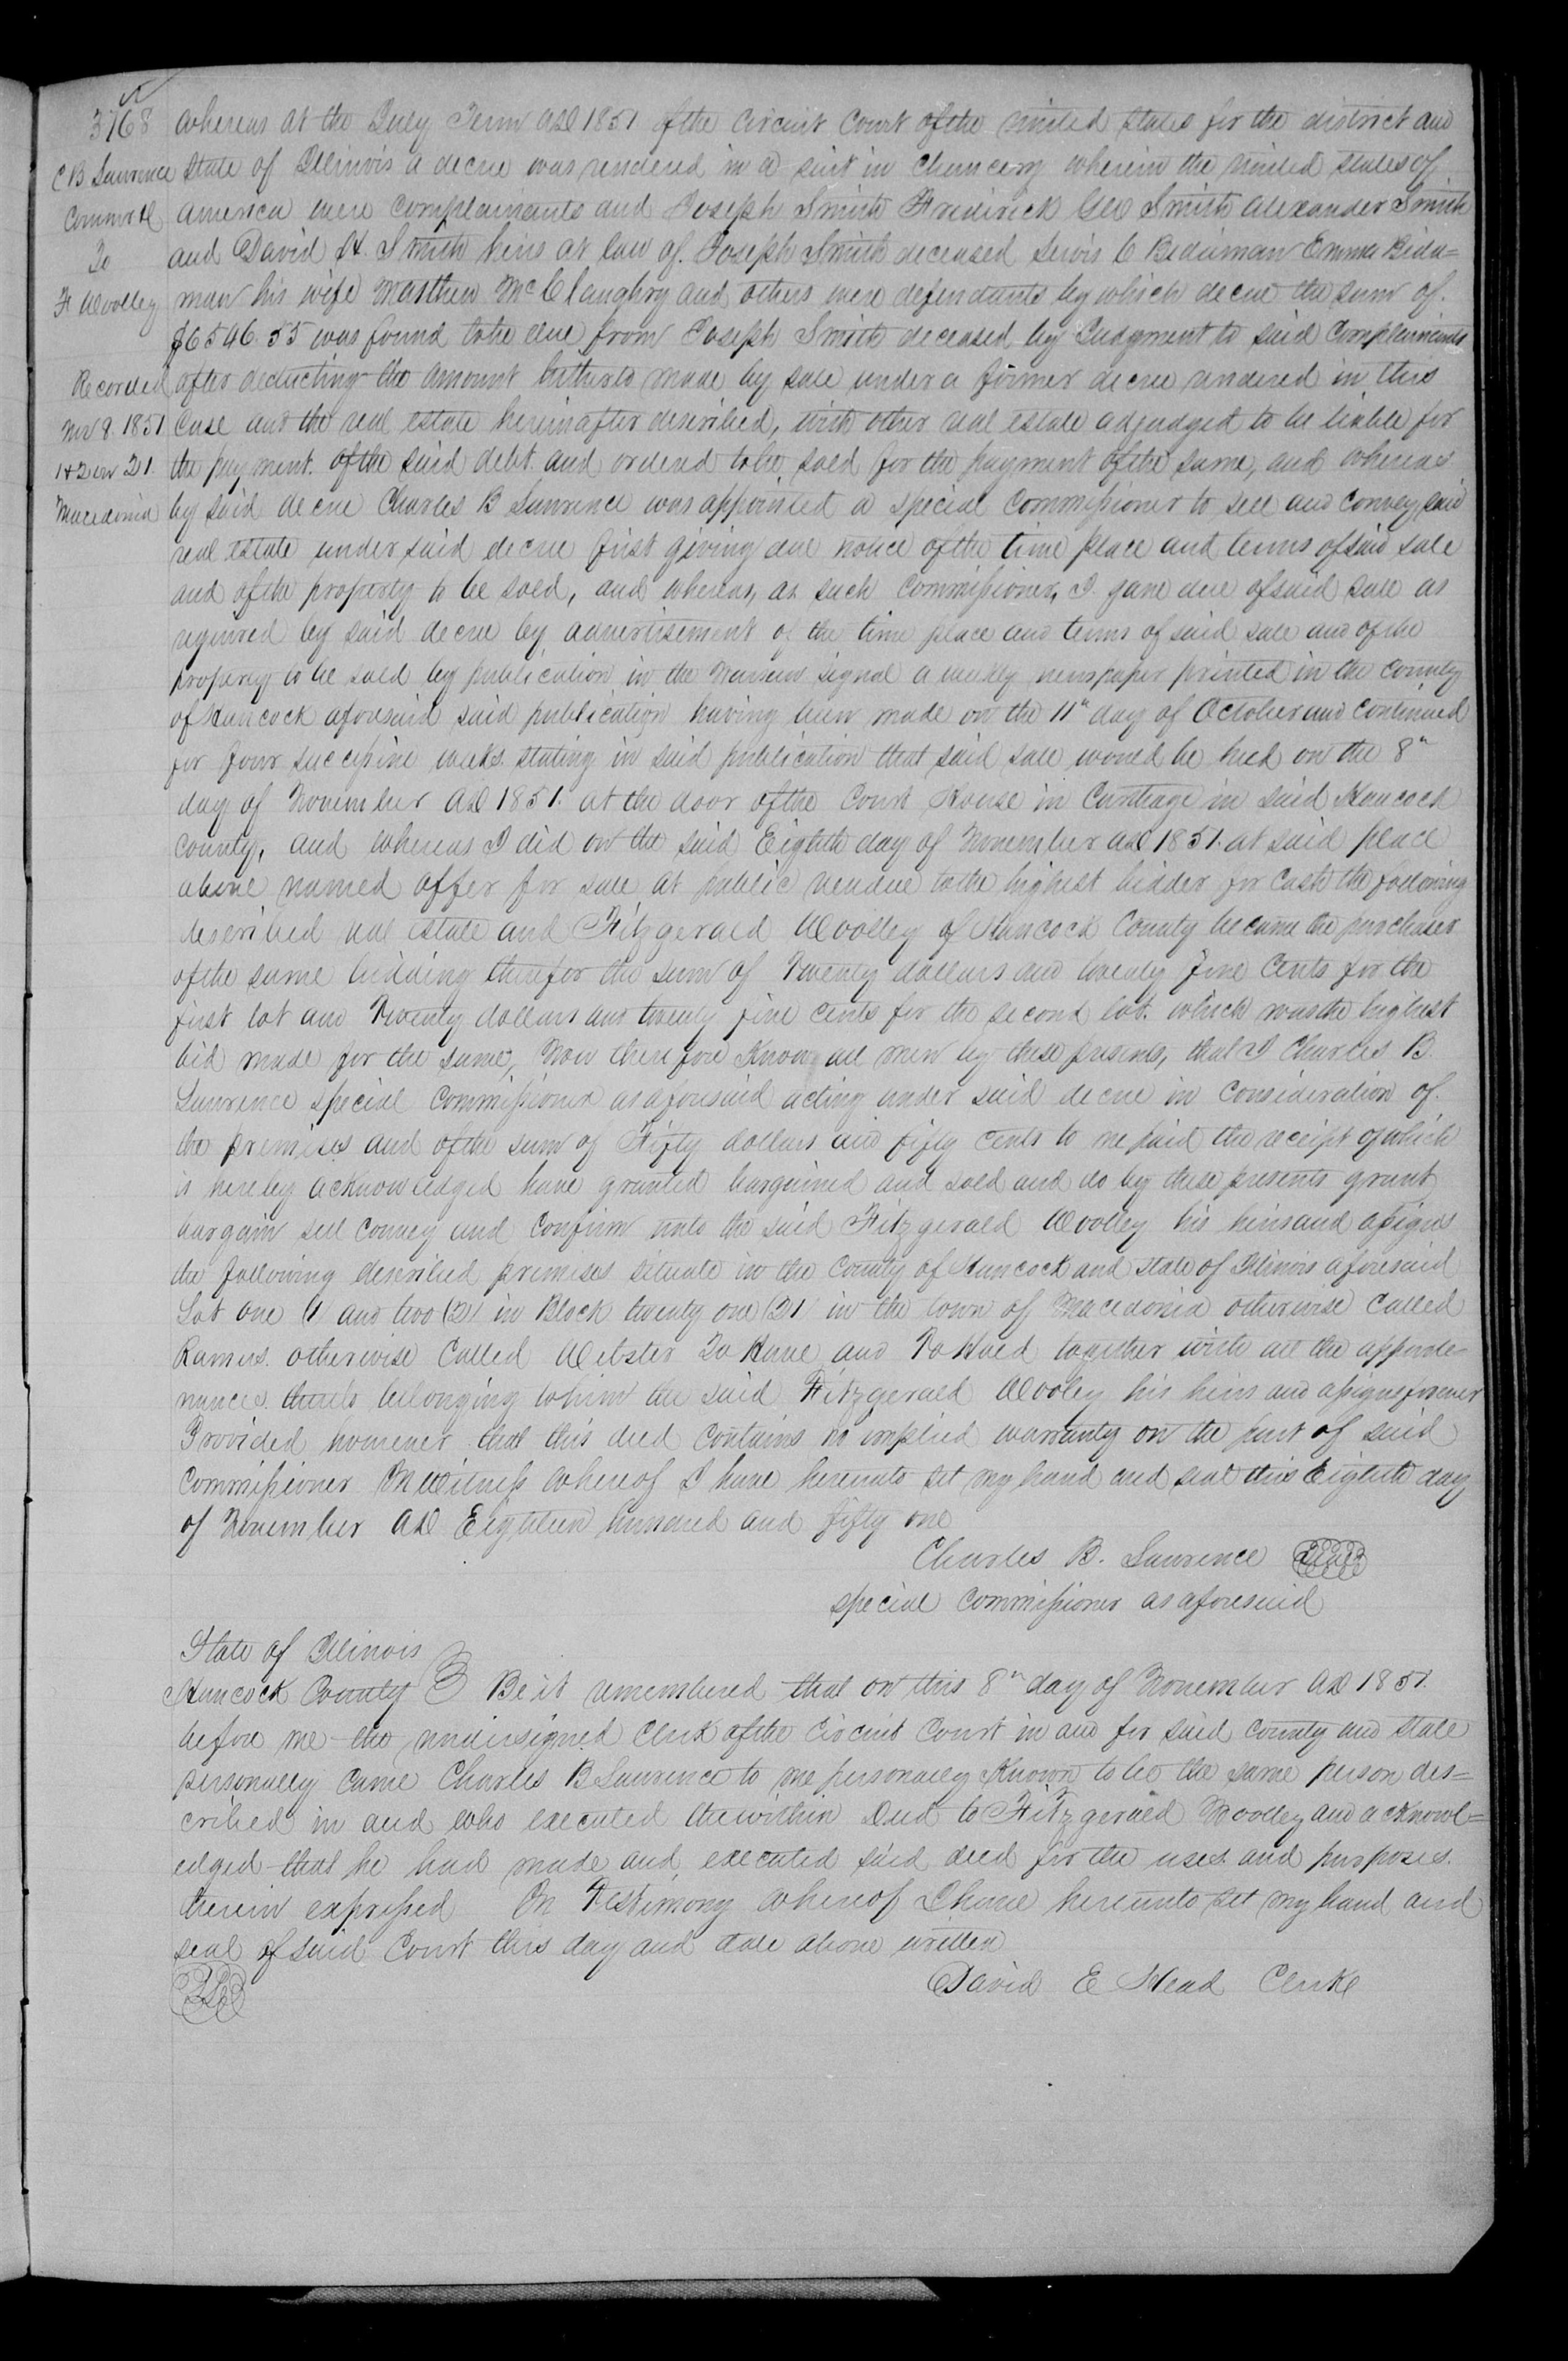 3768
C B Lawrence
Commr &c
To
F Woolley
Recorded
Nov 8. 1851
1 & 2 in 21.
Macedonia
Whereas at the July Term AD 1851 of the Circuit Court of the united States for the district and
State of Illinois a decree was rendered in a suit in Chancery wherein the united states of
America were Complainants and Joseph Smith Frederick GW Smith Alexander Smith
and David H. Smith heirs at law of. Joseph Smith deceased Lewis C Bidaman Emma Bida=
man his wife Matthew McClaughry and others were defendants by which decree the sum of.
was found to be due from Joseph Smith deceased by Judgment to said Complainants
after deducting the amount hitherto made by sale under a former decree rendered in this
Case and the real estate hereinafter described, with other real estate adjudged to be liable for
the payment. of the said debt. and ordered to be sold for the payment of the same, and whereas
by said decree Charles B Lawrence was appointed a special Commissioner to sell and convey said
real estate under said decree first giving due notice of the time place and terms of said sale
and of the property to be sold, and whereas, as such Commissioner, I gave due of said sale as
required by said decree by advertisement of the time place and terms of said sale and of the
property to be sold by publication in the Warsaw signal a weekly newspaper printed in the County
of Hancock aforesaid said publication having been made on the 11th day of October and continued
for four successive weeks. stating in said publication that said sale would be held on the 8th
day of November AD 1851. at the door of the Court House in Carthage in said Hancock
County, and whereas I did on the said Eighth day of November AD 1851. at said place
above named offer for sale at public vendue to the highest bidder for Cash the following
described real estate and Fitzgerald Woolley of Hancock County became the purchaser
of the same bidding therefor the sum of Twenty dollars and twenty five Cents for the
first lot and Twenty dollars and twenty five cents for the second lot. which was the highest
bid made for the same, Now therefore Know all men by these presents, that I Charles B.
Lawrence special Commissioner as aforesaid acting under said decree in consideration of.
the premises and of the sum of Fifty dollars and fifty cents to me paid the receipt of which
is hereby acknowledged have granted bargained and sold and do by these presents grant
bargain sell convey and confirm unto the said Fitzgerald Woolley his heirs and assigns
the following described premises situate in the County of Hancock and state of Illinois aforesaid
Lot one (1 and two (2) in Block twenty one (21) in the town of Macedonia otherwise called
Ramus. otherwise Called Webster To Have and To Hold together with all the appurte-
nances. thereto belonging to him the said Fitzgerald Wooley his heirs and assigns forever
Provided however that this deed contains no implied warranty on the part of said
Commissioner In Witness whereof I have hereunto set my hand and seal this Eighth day
of November AD Eighteen hundred and fifty one
Charles B. Lawrence Seal
special Commissioner as aforesaid
State of Illinois
Hancock County } Be it remembered that on this 8th day of November AD 1851.
before me the undersigned Clerk of the Circuit Court in and for said County and state
personally came Charles B Lawrence to me personally Known to be the same person des=
cribed in and who executed the within Deed to Fitzgerald Woolley and acknowl=
edged that he had made and executed said deed for the uses. and purposes.
therein expressed In Testimony whereof I have hereunto set my hand and
seal of said Court this day and date above written
David E Head Clerk